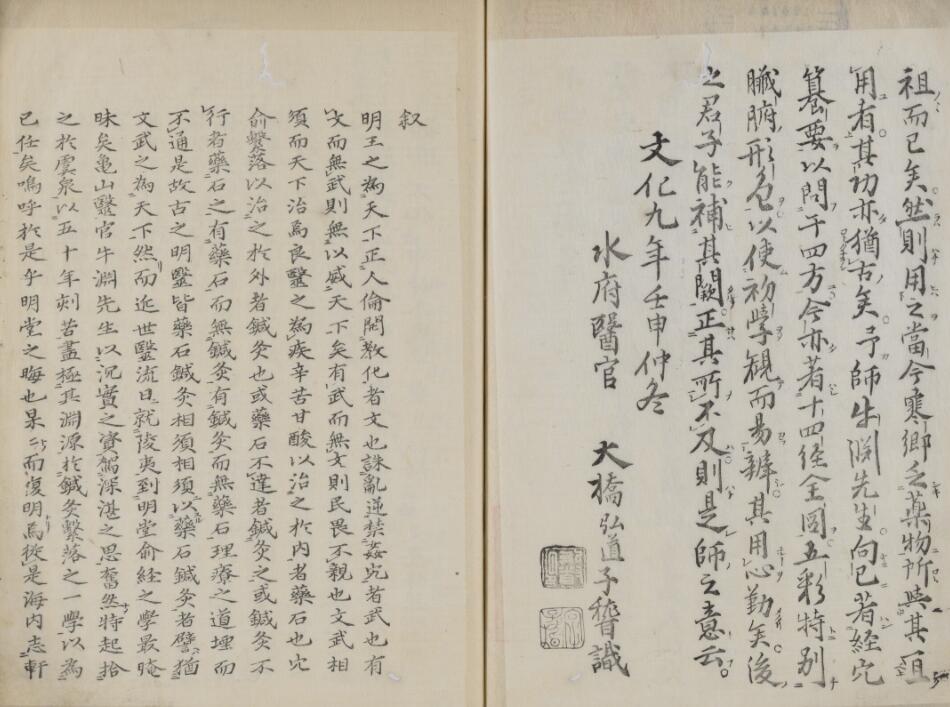 祖而已矣然則用之當今寒鄉乏藥物所與其一
用者其功亦猶古矣予師牛淵先生向已著經穴
纂要以問于四方今亦著十四経全圖五彩特別
臟腑形色以使初學覩而易辨其用心勤矣後
之君子能補其闕正其所不及則是師之意云
文化九年壬申仲冬
水府醫官 大橋弘道子誓識
叙
明王之為天下正人倫開教化者文也誅亂逆禁姦宄者武也有
文而無武則無以威天下矣有武而無文則民畏不親也文武相
須而天下治焉良醫之為疾辛苦甘酸以治之於内者藥石也穴
俞繫落以治之於外者鍼灸也或藥石不達者鍼灸之或鍼灸不
行者藥石之有藥石而無鍼灸有鍼灸而無藥石理療之道堙而
不通是故古之明醫皆藥石鍼灸相須相須以藥石鍼灸者譬猶
文武之為天下然而近世醫流日就陵夷到明堂俞経之學最晻
昧矣亀山醫官牛淵先生以沉實之資駕深湛之思奮然特起拾
之於虞泉以五十年刻苦盡極其淵源於鍼灸繫落之一學以為
已任矣嗚呼於是乎明堂之晦也杲々而復明焉從是海内志軒